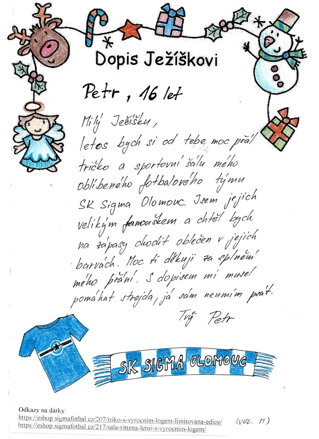 Dopis Ježíškovi
Petr, 16 let
Milý Ježíšku,
letos bych si od tebe moc přál
tričko a sportovní šálu mého
oblíbeného fotbalového týmu
SK Sigma Olomouc. Jsem jejich
velikým fanouškem a chtěl bych
na zápasy chodit oblečen v jejich
barvách. Moc ti děkuji za splnění
mého přání. S dopisem mi musel
pomáhat strejda, já sám neumím psát.
Tvůj Petr
SK SIGMA OLOMOUC
Odkazy na dárky:
https://eshop.sigmafotbal.cz/207/triko-s-vyrocnim-logem-limitovana-edice/
https://eshop.sigmafotbal.cz/217/sala-tistena-letni-s-vyrocnim-logem/
(vel. M)